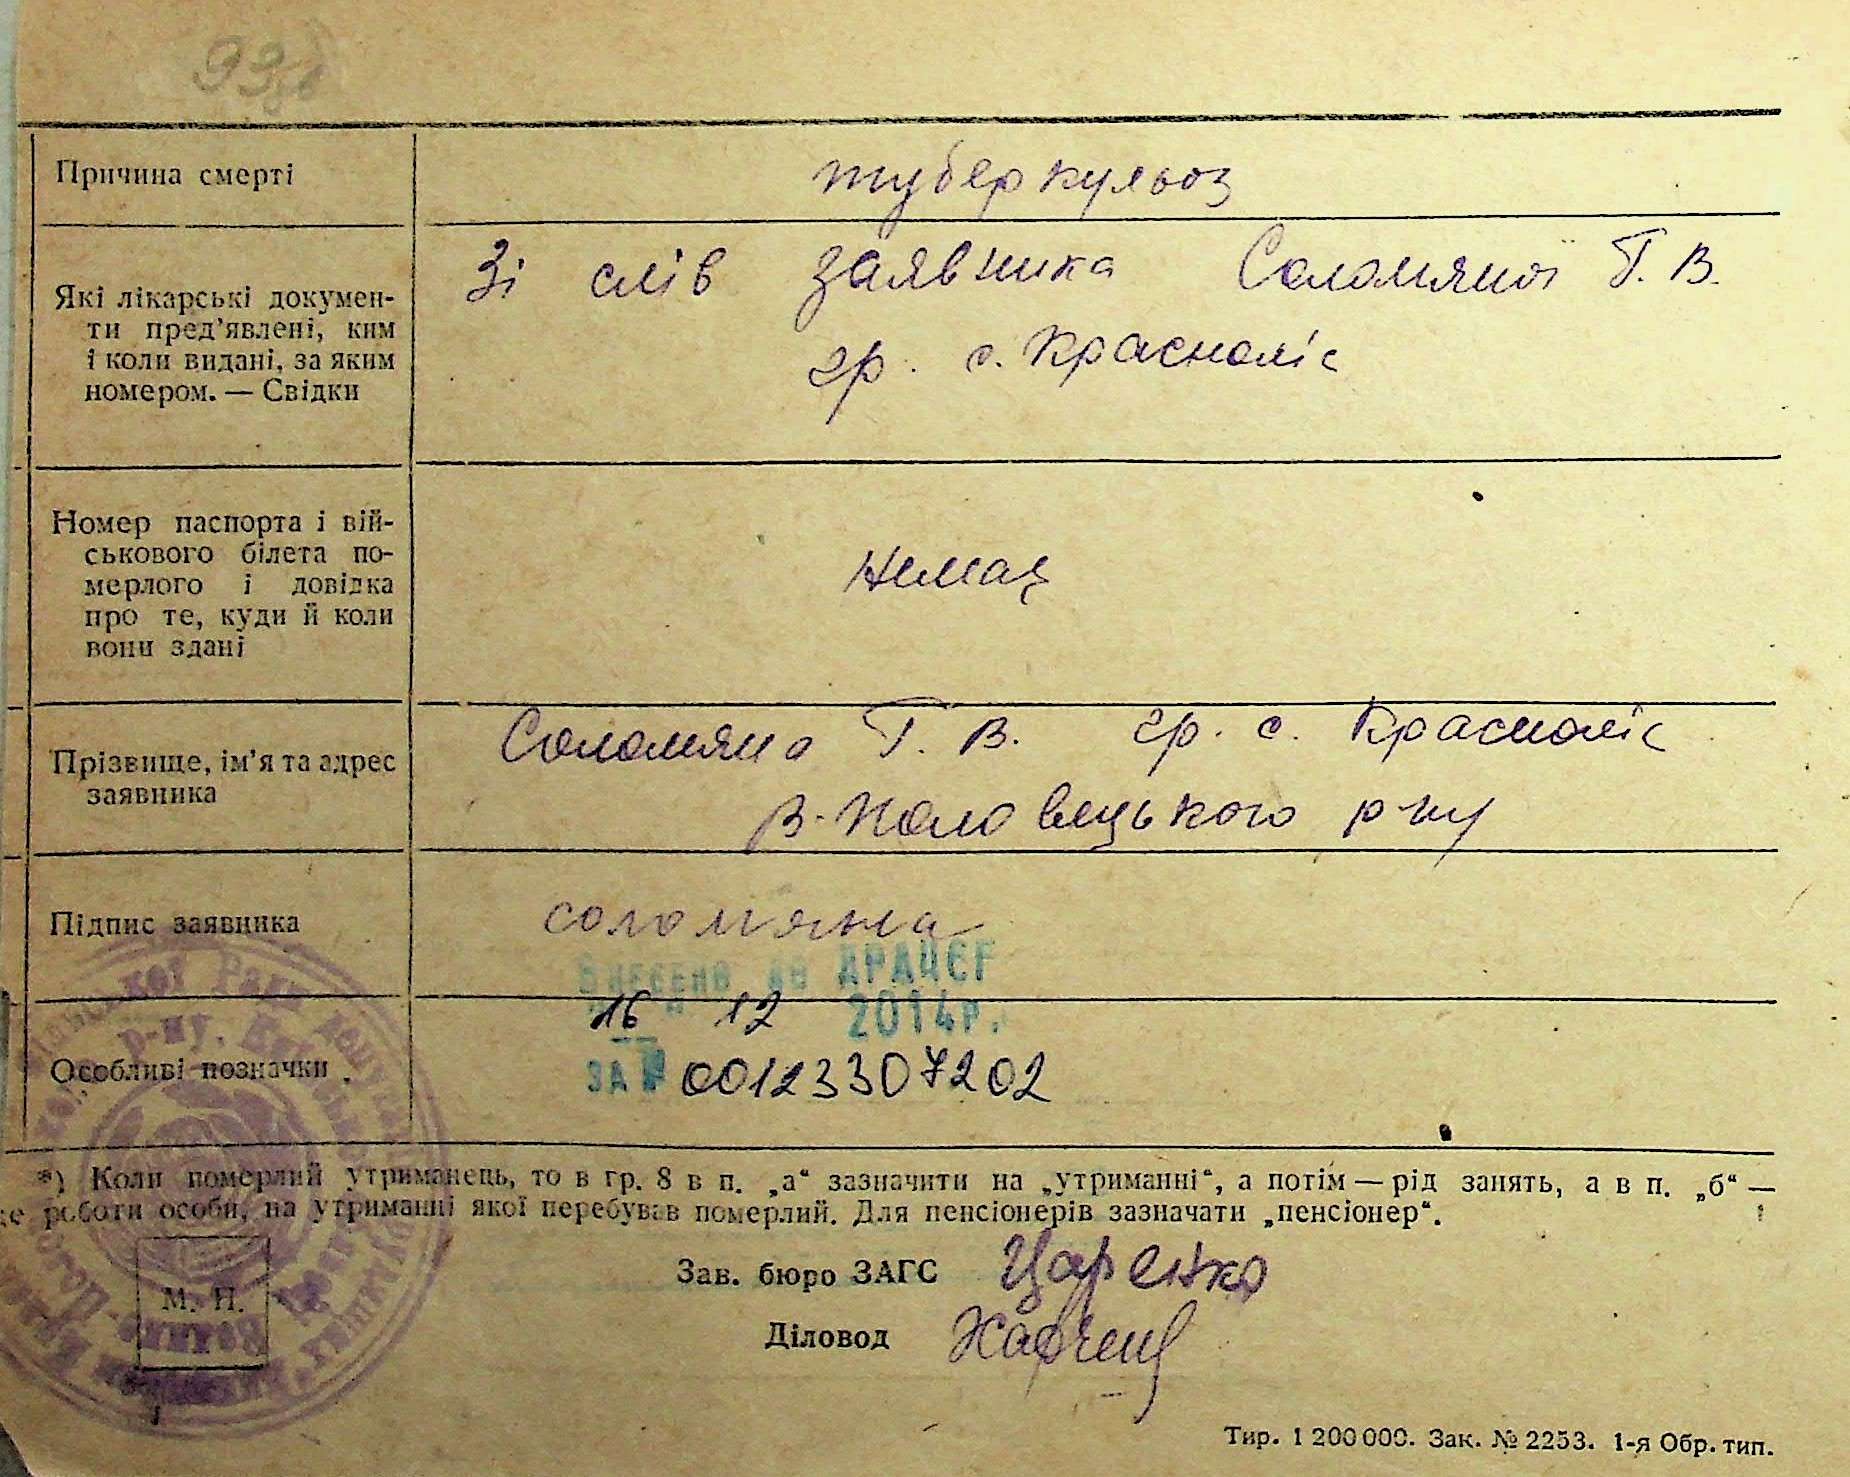 93
Причина смерті
туберкульоз
Які лікарські докумен-
ти пред'явлені, ким
і коли видані, за яким
номером. — Свідки
Зі слів заявника Соломяної Г. В.
гр. с. Красноліс
Номер паспорта і вій-
ськового білета по-
мерлого і довідка
про те, куди й коли
вони здані
Немає
Прізвище, ім'я та адрес
заявника
Соломяна Г. В. гр. с. Красноліс
В-Половецького р-ну
Підпис заявника
соломяна
Внесено до ДРАЦСГ
"16" 12 2014р.
ЗА № 00123307202
Особливі позначки
*) Коли померлий утриманець, то в гр. 8 в п. „а“ зазначити на „утриманні“, а потім — рід занять, а в п. „б“ —
це роботи особи, на утриманні якої перебував померлий. Для пенсіонерів зазначати „пенсіонер“.
Зав. бюро ЗАГС Царенко
М. П.
Діловод
Тир. 1 200 000. Зак. № 2253. 1-я Обр. тип.